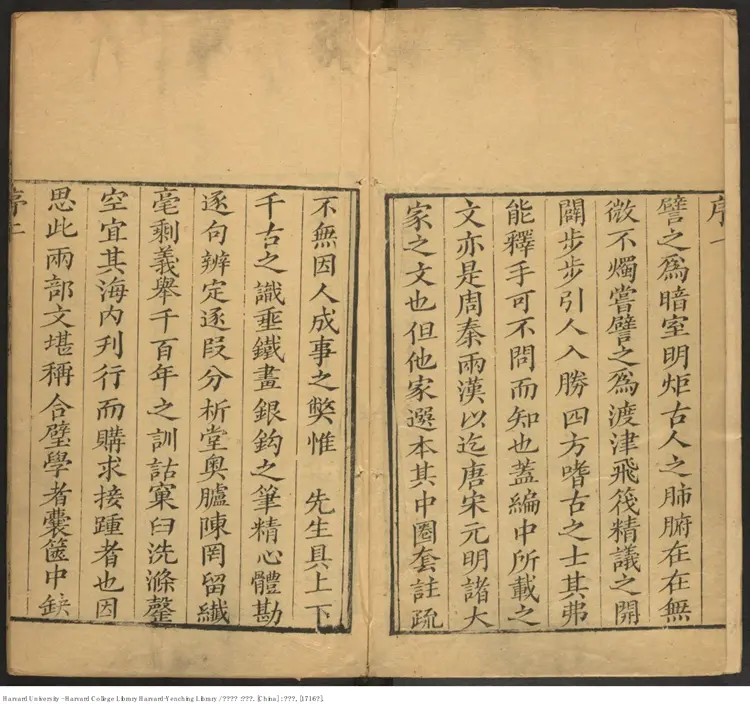 序一
譬之爲暗室明炬古人之肺腑在在無
微不燭嘗譬之爲渡津飛筏精議之開
闢步步引人入勝四方嗜古之士其弗
能釋手可不問而知也蓋編中所載之
文亦是周秦兩漢以迄唐宋元明諸大
家之文也但他家選本其中圈套註疏
不無因人成事之獘惟 先生具上下
千古之識垂鐵畫銀鈎之筆精心體勘
逐句辨定逐段分析堂奧臚陳罔留纖
毫剩義舉千百年之訓詁窠臼洗滌罄
空宜其海内刋行而購求接踵者也因
思此兩部文堪稱合璧學者囊篋中缺
序二
Harvard University - Harvard College Library Harvard-Yenching Library / ???? : ???. [China] : ???, [1716?].